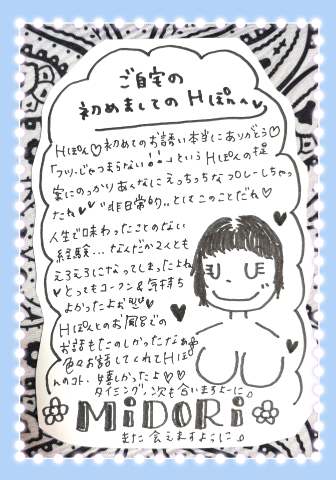 ご自宅の
初めましてのHぽんへ
Hぽん♡初めてのお誘い本当にありがとう♡
「フツーじゃつまらない!!」というHぽんの提
案にのっかりあんなにえっちっちなプレーしちゃっ
たね♡"非日常的"とはこのことだね♡
人生で味わったことのない
経験…なんだか2人とも
えろえろになってしまったよね
♥とってもコーフン&気持ち
よかったよお
Hぽんとのお風呂での
お話もたのしかったなぁ
色々お話してくれてHぽ
んのコト、嬉しかったよ♡♡
タイミング、次も合いますよーに。
MiDORi
また会えますよーに。